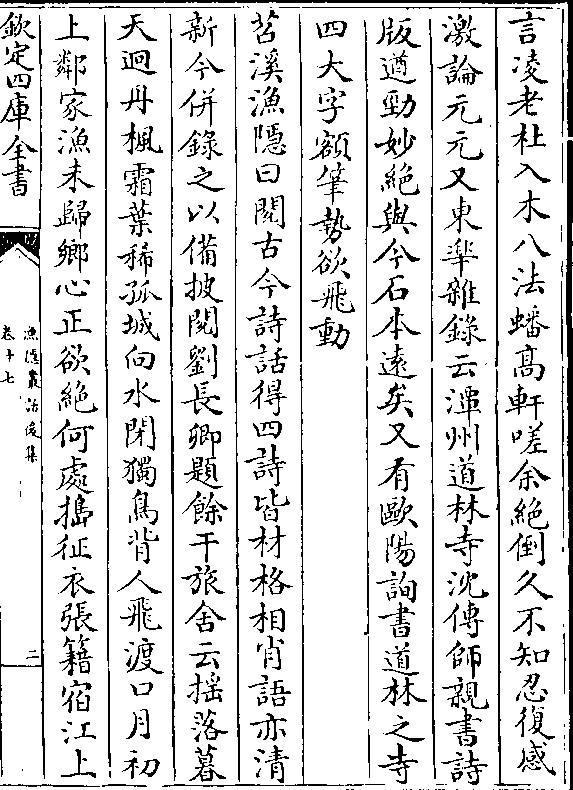 言凌老杜入木八法蟠髙軒嗟余絶倒久不知忍復感
激論元元又東臯雜錄云潭州道林寺沈傳師親書詩
版遒勁妙絶與今石本逺矣又有歐陽詢書道林之寺
四大字額筆勢欲飛動
苕溪漁隠曰閱古今詩話得四詩皆材格相肖語亦清
新今併錄之以備披閱劉長卿題餘干旅舍云揺落暮
天迥丹楓霜葉稀孤城向水閉獨鳥背人飛渡口月初
上鄰家漁未歸鄉心正欲絶何處搗征衣張籍宿江上
欽定四庫全書
漁隠叢話後集
卷十七
二